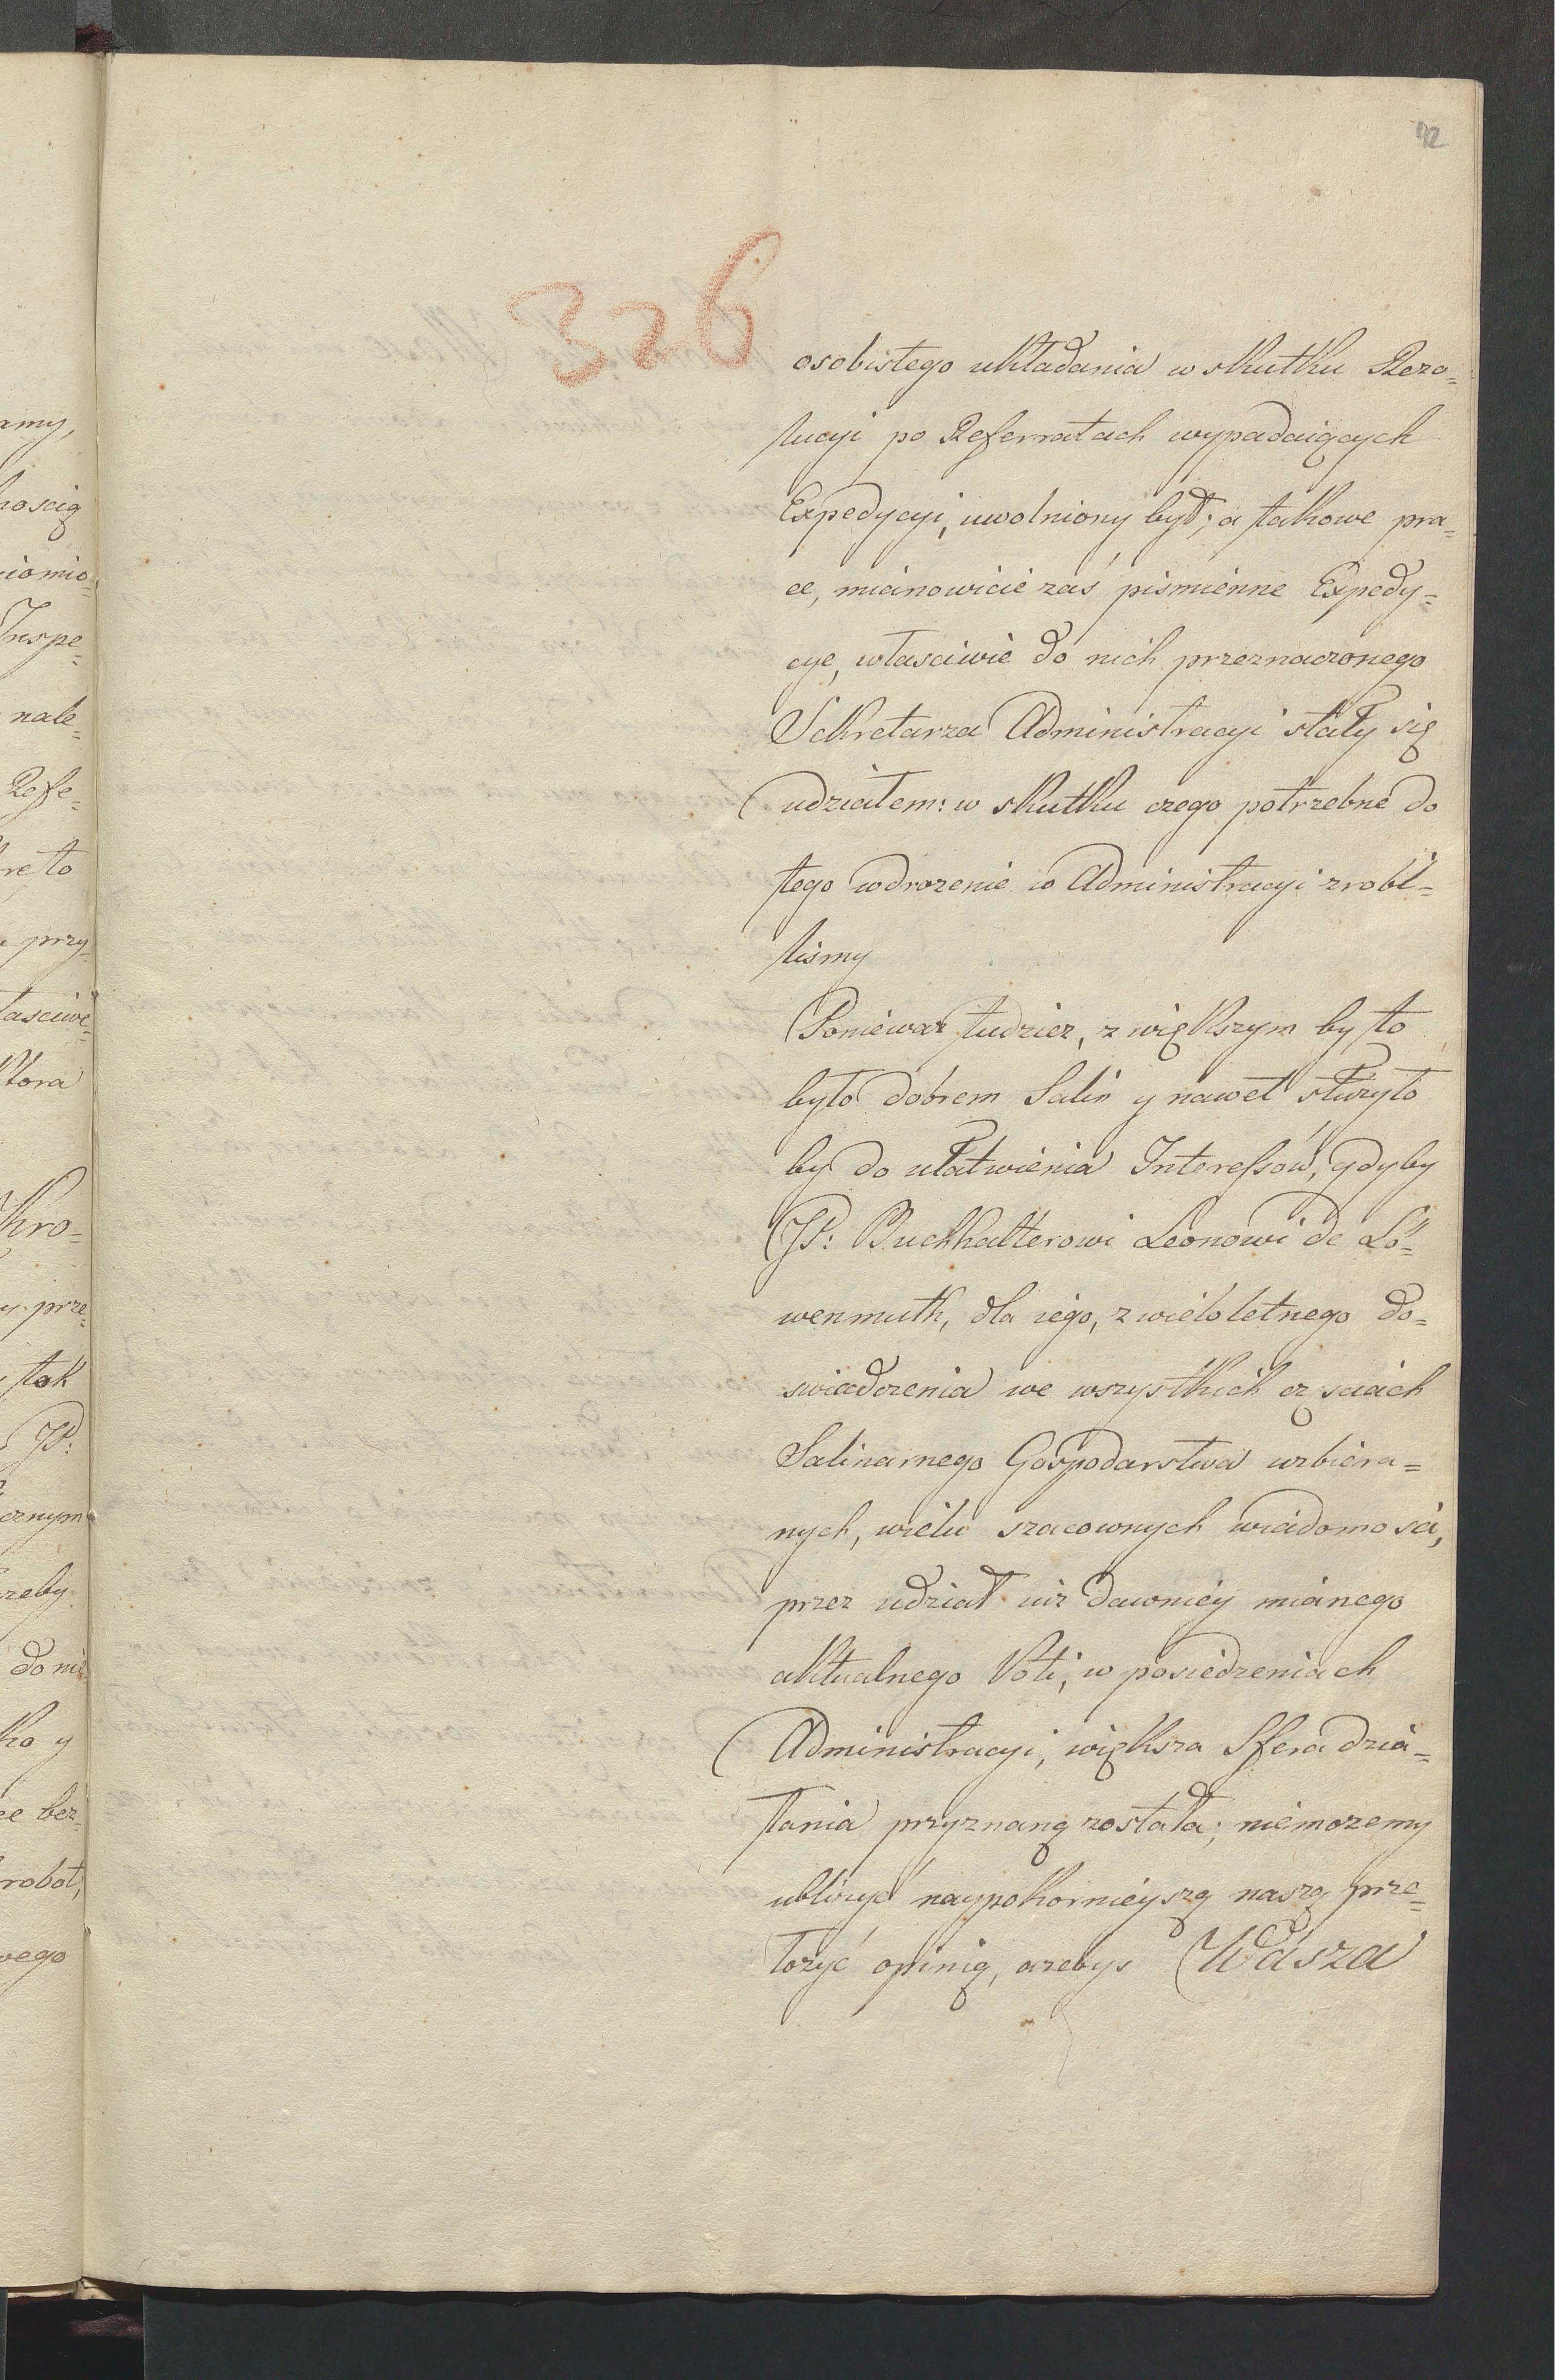 92
326
osobistego układania w skutku Rezo=
lucyi po Referratach wypadaiących
Expedycyi, uwolniony był; a takowe pra=
ce, mianowicie zaś pismienne Expedy=
cye, własciwie do nich przeznaczonego
Sekretarza Administracyi stały się
udziałem: w skutku czego potrzebne do
tego wdrozenie w Administracyi zrobi=
lismy
Poniewaz tudziez, z większym by to
było dobrem Salin y nawet słuzyło
by do ułatwienia Interessów, gdyby
JP: Buchhalterowi Leonowi de Lö=
wenmuth, dla iego, z wieloletnego do=
swiadczenia we wszystkich częsciach
Salinarnego Gospodarstwa uzbiera=
nych, wielu szacownych wiadomosci,
przez udział iuz dawniey mianego
aktualnego Voti, w posiedzeniach
Administracyi, większa Sfera dzia=
łania przyznaną została; niemozemy
ubliżyć naypokornieyszą naszą prze=
łozyć opinią, azebys Wasza
amy,
noscią
iomio=
Inspe=
nale=
Refe=
re to
przy=
łasciwe=
ktora
kro=
y prze=
tak
JP:
cznym
zeby
do nie=
ko y
ce bez=
robot,
wego